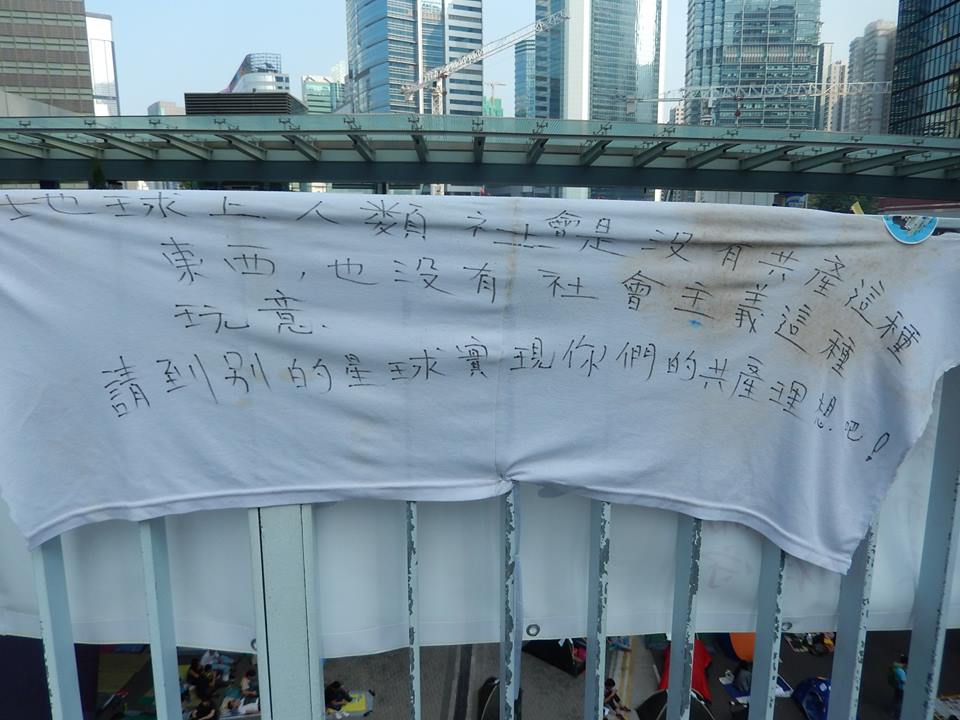 地球上人類社會是没有共產這種
東西,也没有社會主義這種
玩意.
請到别的星球實現你們的共產理想吧!